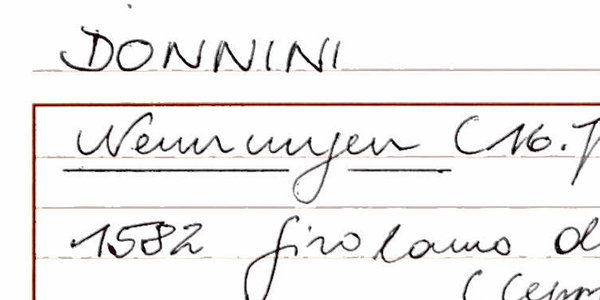 DONNINI
Nennungen (16.
1582 Girolamo d